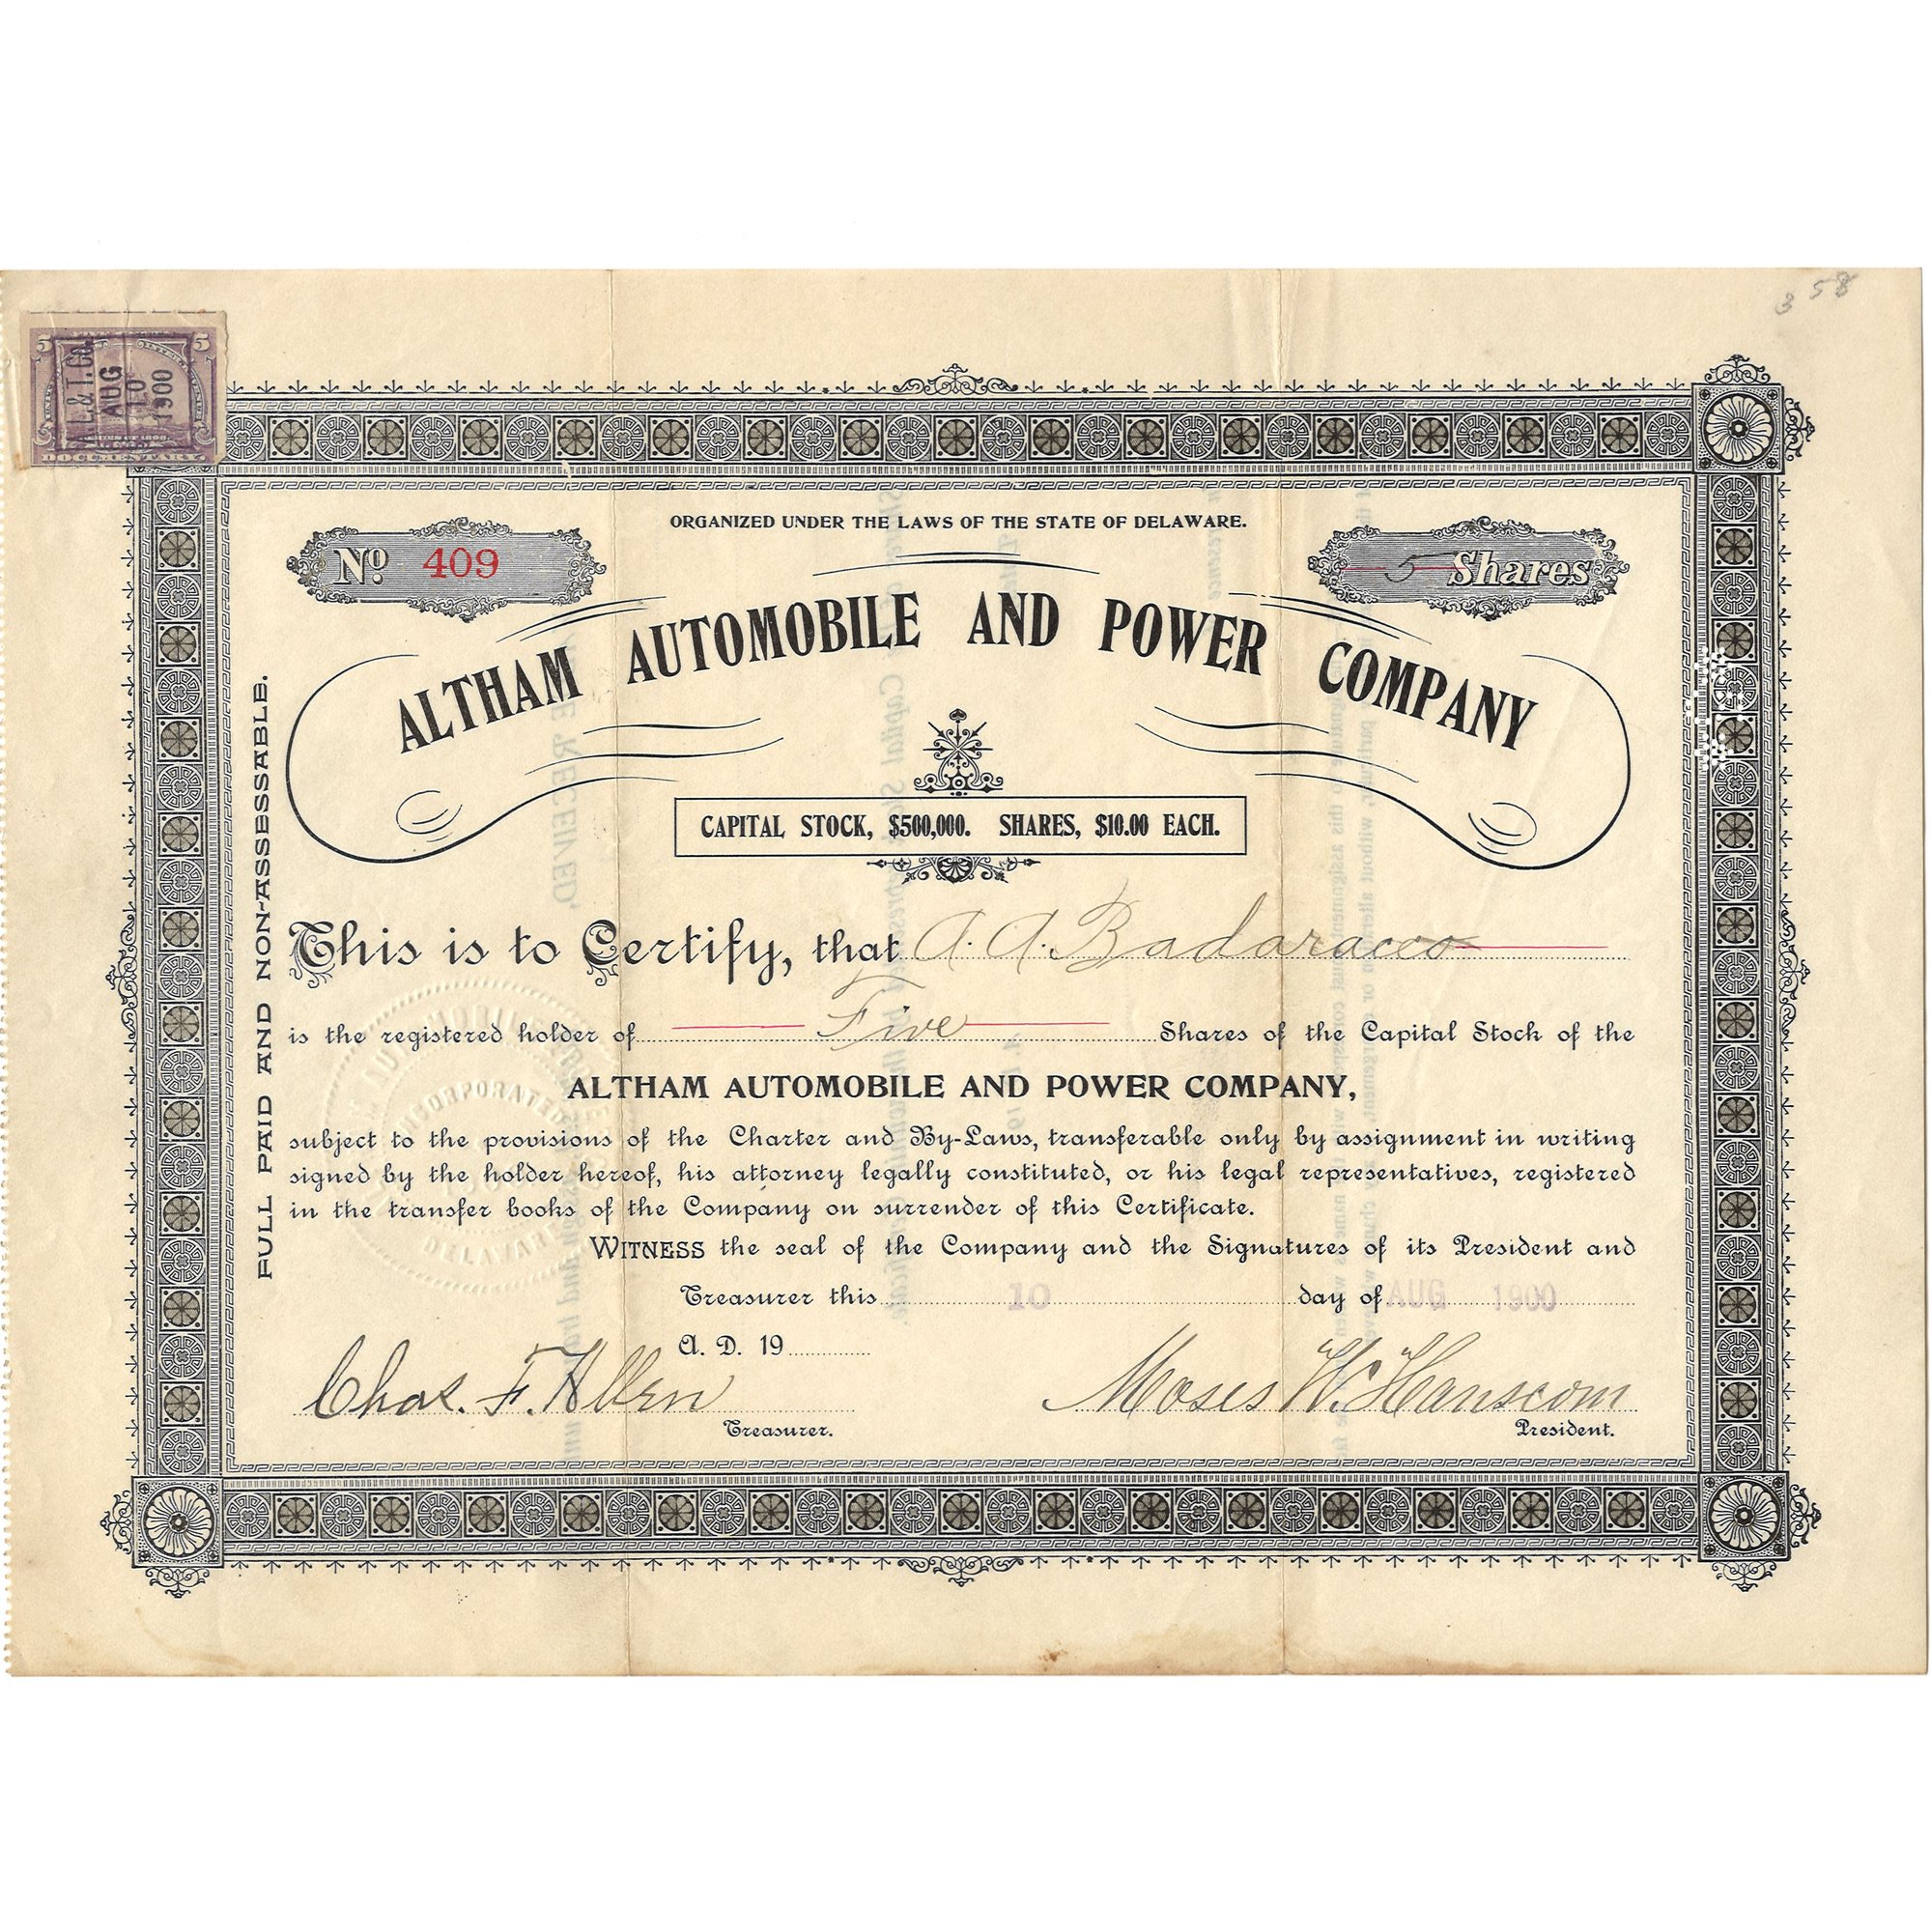 3 58
5 5
L. & T. Co.
AUG
10
1900
DOCUMENTARY
ORGANIZED UNDER THE LAWS OF THE STATE OF DELAWARE.
No. 409
5 Shares
ALTHAM AUTOMOBILE AND POWER COMPANY
CAPITAL STOCK, $500,000. SHARES, $10.00 EACH.
FULL PAID AND NON-ASSESSABLE.
This is to Certify, that A. A. Badaracco
is the registered holder of Five Shares of the Capital Stock of the
ALTHAM AUTOMOBILE AND POWER COMPANY,
subject to the provisions of the Charter and By-Laws, transferable only by assignment in writing
signed by the holder hereof, his attorney legally constituted, or his legal representatives, registered
in the transfer books of the Company on surrender of this Certificate.
WITNESS the seal of the Company and the Signatures of its President and
Treasurer this 10 day of AUG 1900
A. D. 19
Chas. F. Allen
Treasurer.
Moses W. Hanscom
President.
INCORPORATED
DELAWARE